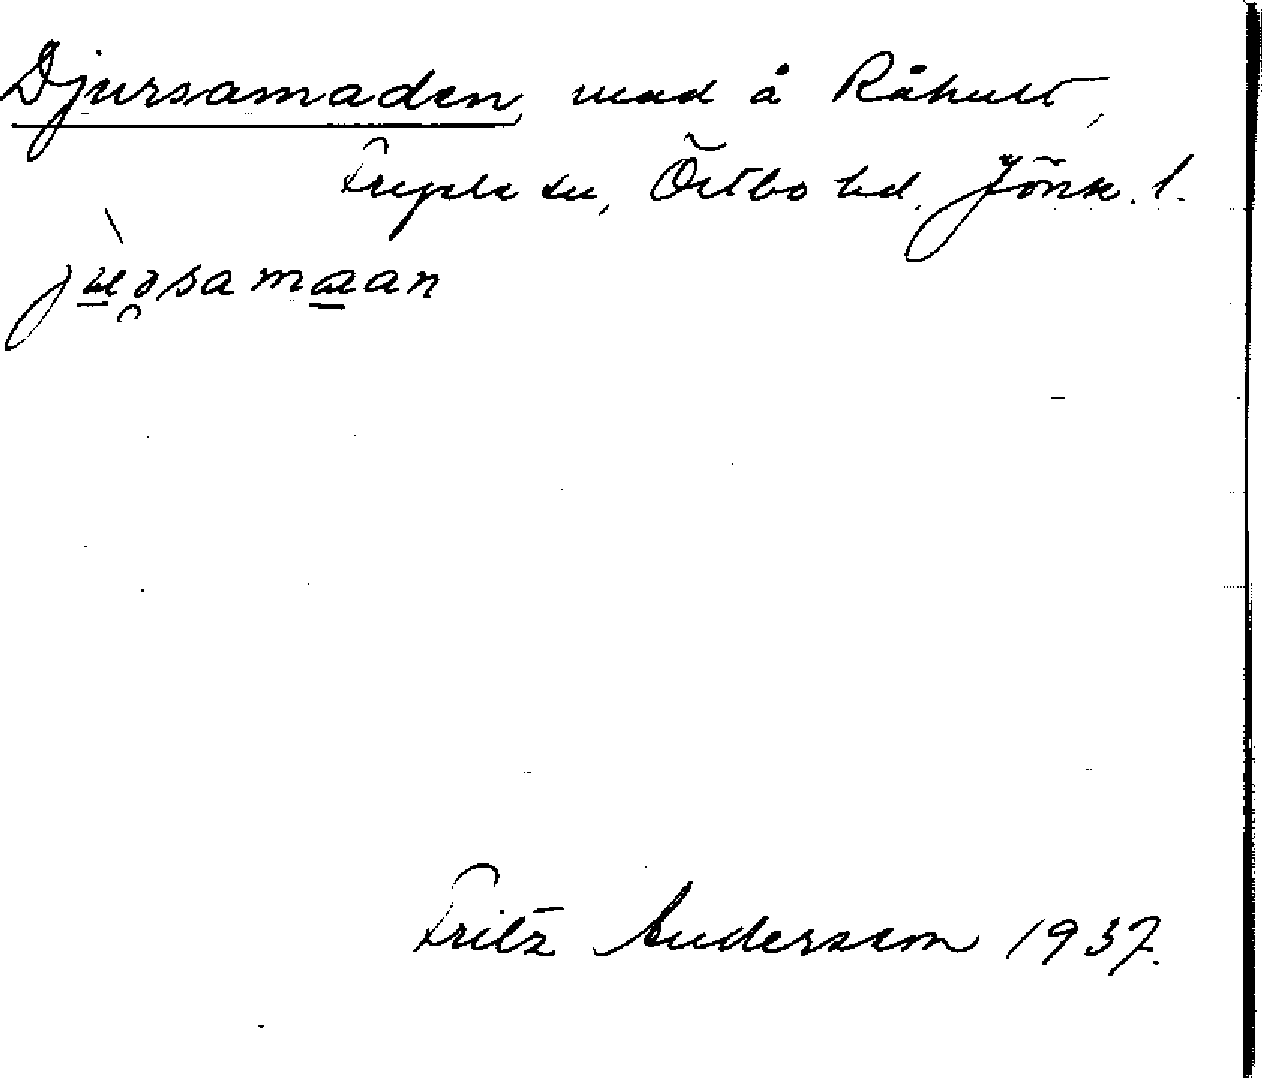 Djursamaden, mad å Råhult,
Fryele sn, Östbo hd. Jönk. l.
Fritz Andersson 1937.